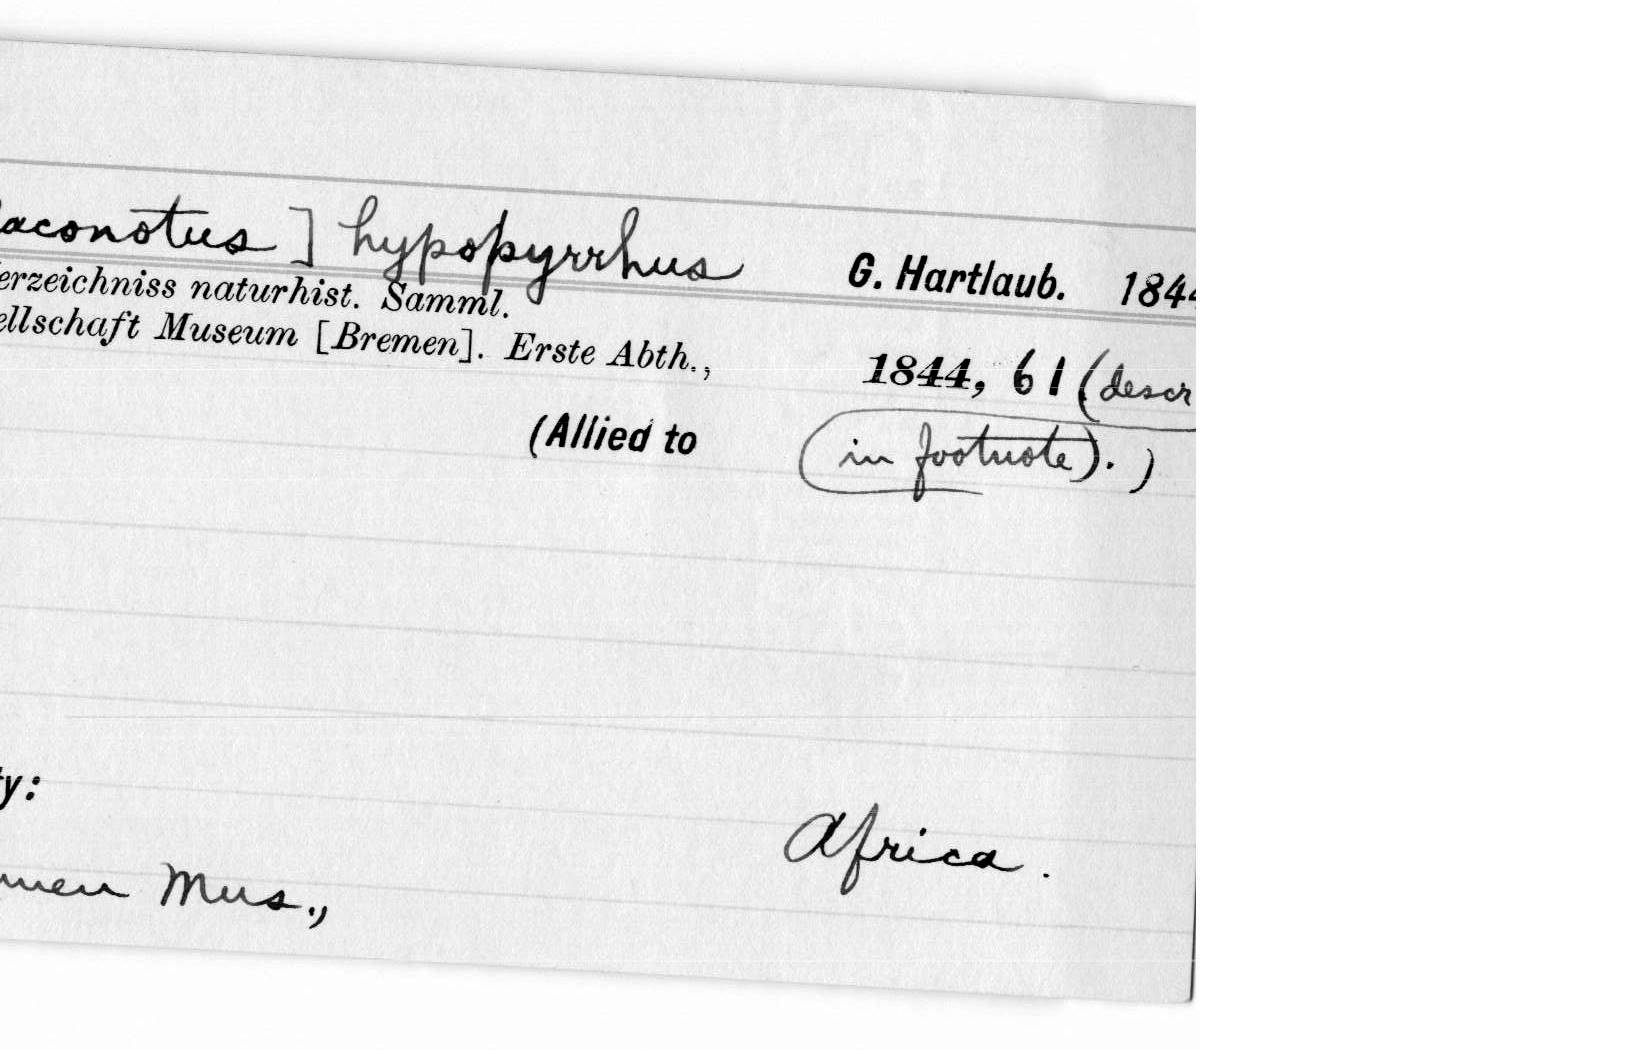 laconotus] hypopyrrhus G. Hartlaub. 1844
erzeichniss naturhist. Samml.
ellschaft Museum [Bremen]. Erste Abth., 1844, 61 (descr
(Allied to in footnote). )
ty: Africa.
men Mus.,